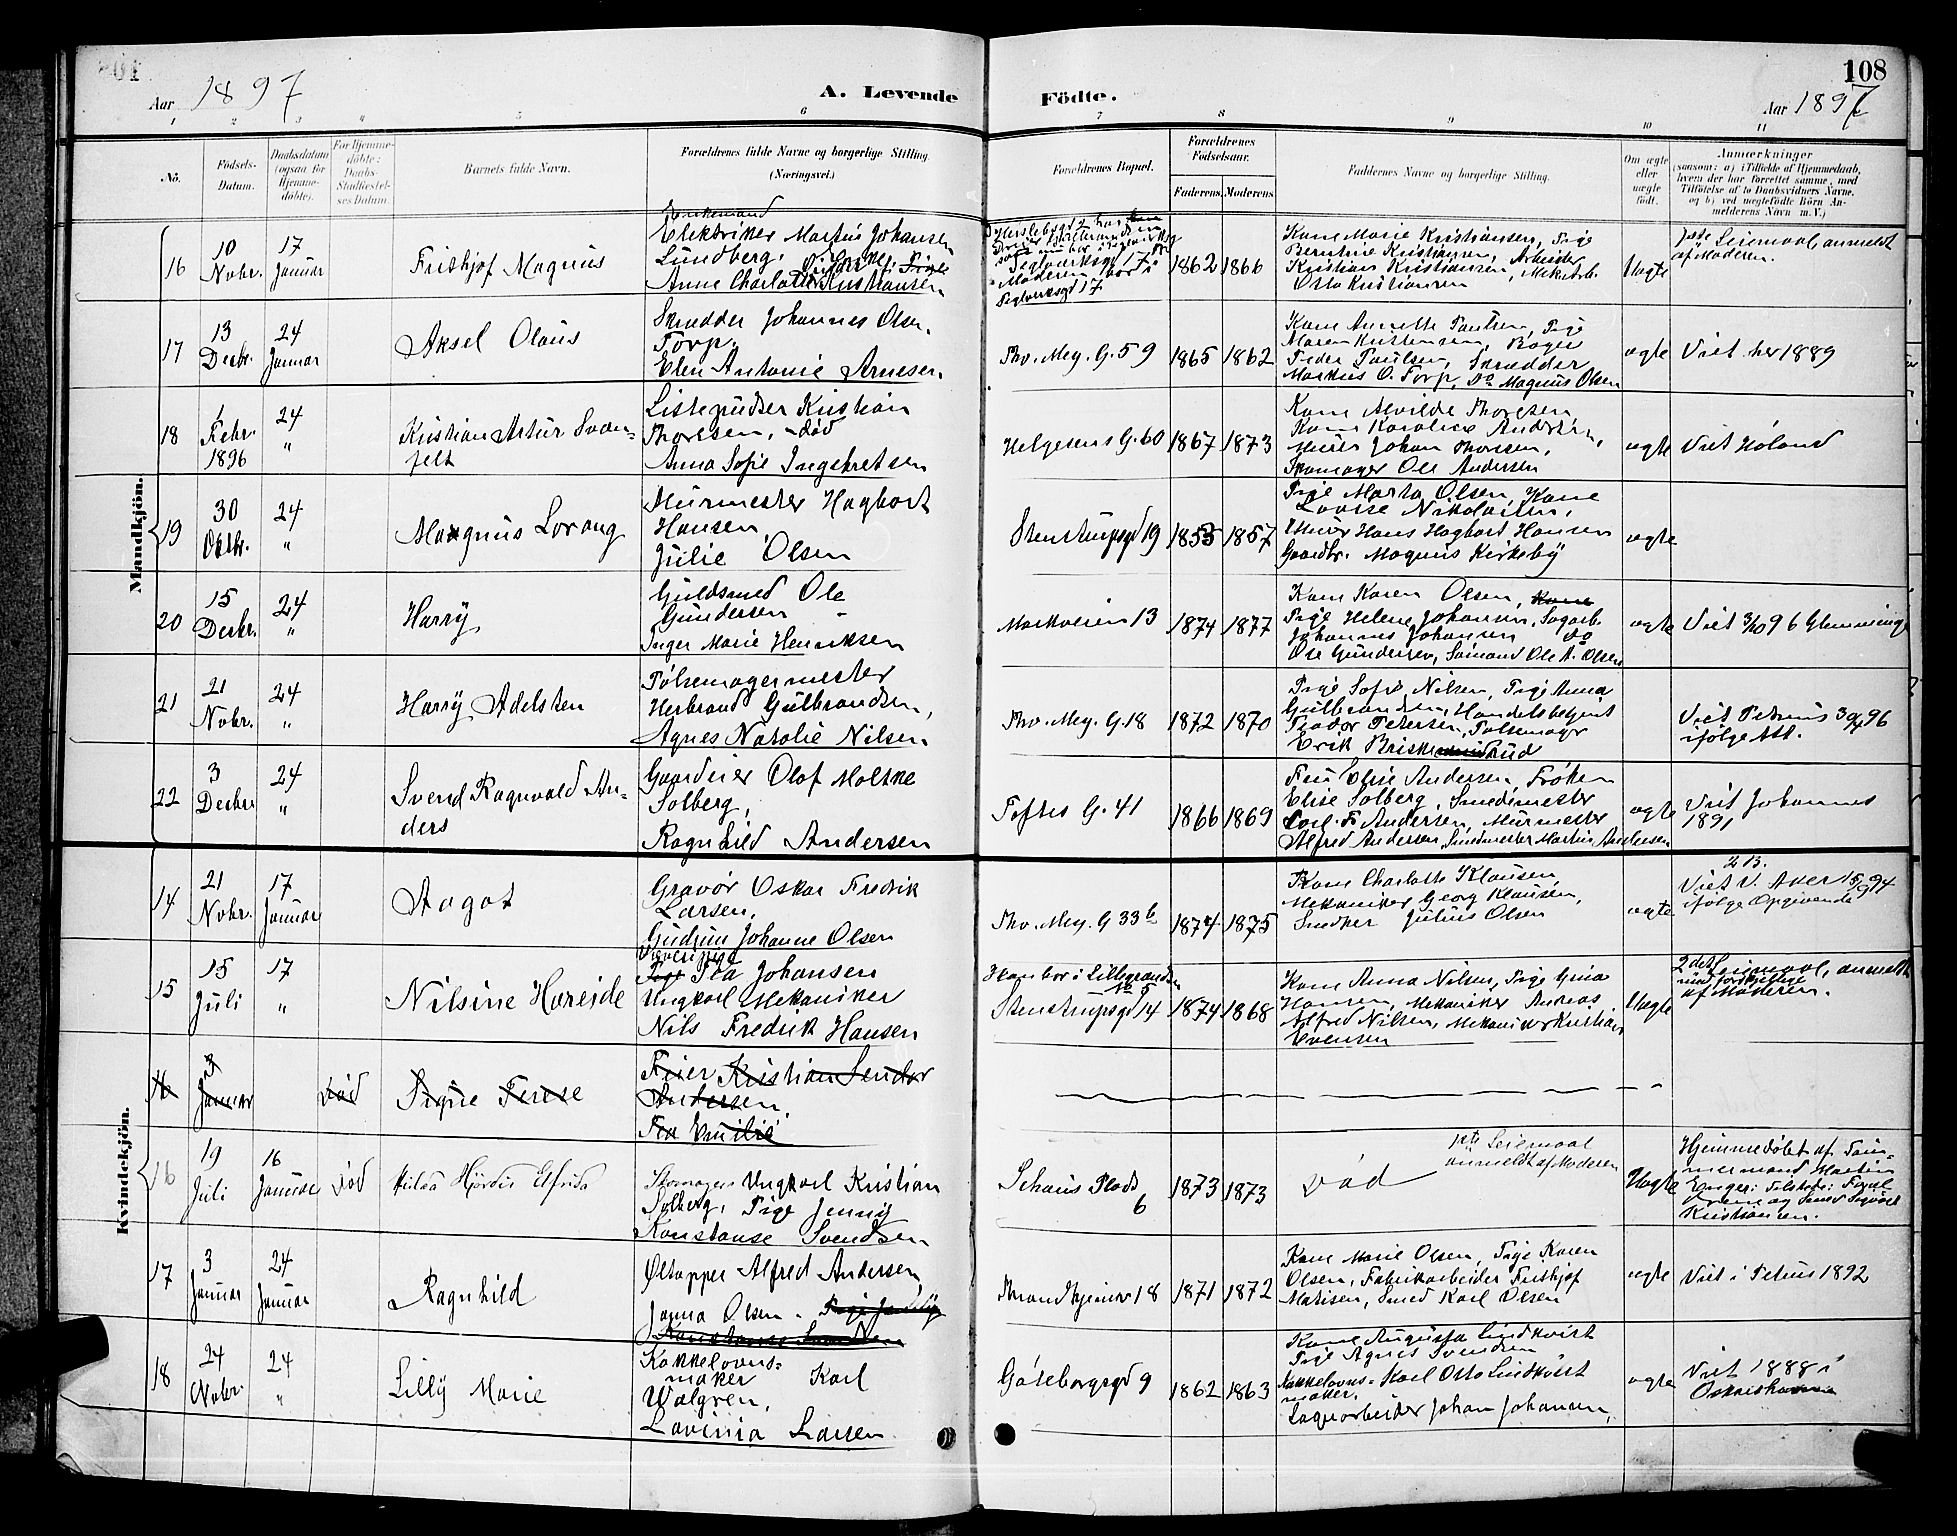 Aar 1897
A. Levende
Födte.
108
Aar 1897
1 2 3 4 5 6 7 8 9 10 11
No.
Födsels-
Datum.
Daabsdatum
(ogsaa for
Hjemme-
döbte).
For Hjemme-
döbte:
Daabs-
Stadfæstel-
ses Datum.
Barnets fulde Navn.
Forældrenes fulde Navne og borgerlige Stilling
(Næringsvei.)
Forældrenes Bopæl.
Forældrenes
Födselsaar.
Faderens. Moderens.
Faddernes Navne og borgerlige Stilling.
Om ægte
eller
uægte
födt.
Anmærkninger
(saasom: a) i Tilfælde af Hjemmedaab,
hvem der har forrettet samme, med
Tilföielse af to Daabsvidners Navne,
og b) ved uægtefödte Börn An-
melderens Navn m. V.)
Mandkjön.
16
10
Novbr.
17
Januar
Frithjof Magnus
Enkemand
Elektriker Martius Johansen
Lundberg.
Anne Charlotte Kristiansen
Teglverksgd 17
Moderen bor i
Teglverksgd 17
1862 1866
Kone Marie Kristiansen, Pige
Berntine Kristiansen, Arbeider
Kristian Kristiansen, Mek. Arb.
Otto Kristiansen
Uægte
Leiermaal anmeldt
af Moderen.
17
13
Decbr.
24
Januar
Aksel Olaus
Skrædder Johannes Olsen
Torp.
Elen Antonie Arnesen
Thv. Mey. G. 59
1865 1862
Kone Annette Paulsen, Pige
Maren Kristensen, Bager
Peder Paulsen, Skrædder
Markus O. Torp, Do Magnus Olsen
ægte
Viet her 1889
18
1
Febr.
1896
24
"
Kristian Artur Svan-
felt
Listepudser Kristian
Thoresen, død
Anna Sofie Ingebretsen
Helgesens G. 60
1867 1873
Kone Alvilde Thoresen
Kone Karoline Andersen,
Murer Johan Thoresen,
Skomager Ole Andersen
ægte
Viet Høland
19
30
Oktbr.
24
"
Magnus Lorang
Murmester Hagbart
Hansen
Julie Olsen
Stenstrupsgd 19
1853 1857
Pige Marta Olsen, Kone
Lovise Nikolaisen,
Murer Hans Hagbart Hansen
Gaardbr. Magnus Kirkeby
ægte
20
15
Decbr.
24
"
Harry
Guldsmed Ole
Gundersen
Inger Marie Henriksen
Markveien 13
1874 1877
Kone Karen Olsen, Kone
Pige Helene Johansen, Sagarb.
Johannes Johansen Do
Ole Gundersen, Sømand Ole A. Olsen
ægte
Viet 3/10 96 Glemminge
21
21
Novbr.
24
"
Harry Adelsten
Pølsemagermester
Herbrand Gulbrandsen,
Agnes Natalie Nilsen
Thv. Mey. G. 18
1872 1870
Pige Sofie Nilsen, Pige Anna
Gulbrandsen, Handelsbetjent
Teodor Petersen, Pølsemager
Erik Briskerud
Viet Petrus 96
ifølge Att.
22
3
Decbr
24
"
Svend Ragnvald An-
ders
Gaardeier Olaf Moltke
Solberg,
Ragnhild Andersen
Toftes G. 41
1866 1869
Fru Elise Andersen, Frøken
Elise Solberg, Smedemester
Carl F. Andersen, Murmester
Alfred Andersen, Smedmester Martin Andersen
ægte
Viet Johannes
1891
Kvindekjön.
14
21
Novbr.
17
Januar
Aagot
Gravør Oskar Fredrik
Larsen,
Gudrun Johanne Olsen
Thv. Mey. G 33 b
1874 1875
Kone Charlotte Klausen
Mekaniker Georg Klausen,
Snedker Julius Olsen
ægte
2 B.
Viet V. Aker 94
ifølge Opgivende
15
15
Juli
17
"
Nilsine Hareide
Væverpige
Pige Pia Johansen
Ungkarl Mekaniker
Nils Fredrik Hansen
Han bor i Lillegrændsen
Stenstrupsgd 14
1874 1868
Kone Anna Nilsen, Pige Gina
Hansen, Mekaniker Andreas
Alfred Nilsen, Mekaniker Kristian
Evensen
Uægte
2det Leiermaal, anmeldt
af Moderen.
16
3
Januar
død
Signe Terese
Feier Kristian Sendor
Andersen,
Pia Emilie
16
19
Juli
16
Januar
død
Hilda Hjørdis Elfrida
Skomager Ungkarl Kristian
Solberg, Pige Jenny
Konstanse Svendsen
Schaus Plads
6
1873 1873
død
1ste Leiermaal
anmeldt af Moderen
Uægte
Hjemmedøbt af Tøm-
mermand Martin
Enger; Tilstede: Fru
Kristiansen.
17
3
Januar
24
Januar
Ragnhild
Øltapper Alfred Andersen
Janna Olsen. Pige Jenny
Konstanse Svendsen
Throndhjemsv 18
1871 1872
Kone Marie Olsen, Pige Karen
Olsen, Fabrikarbeider Fritjof
Matisen, Smed Karl Olsen
ægte
Viet i Petrus 1892
18
24
Novbr.
24
"
Lilly Marie
Kakkelovns-
maker Karl
Walgren,
Lavinia Larsen
Göteborgsgd 9
1862 1863
Kone Augusta Lindkvist
Pige Agnes Svendsen
Kakkelovns- Karl Otto Lindkvist
maker.
Lagerarbeider Johan Johansen,
ægte
Viet 1888 i
Oskarshamn